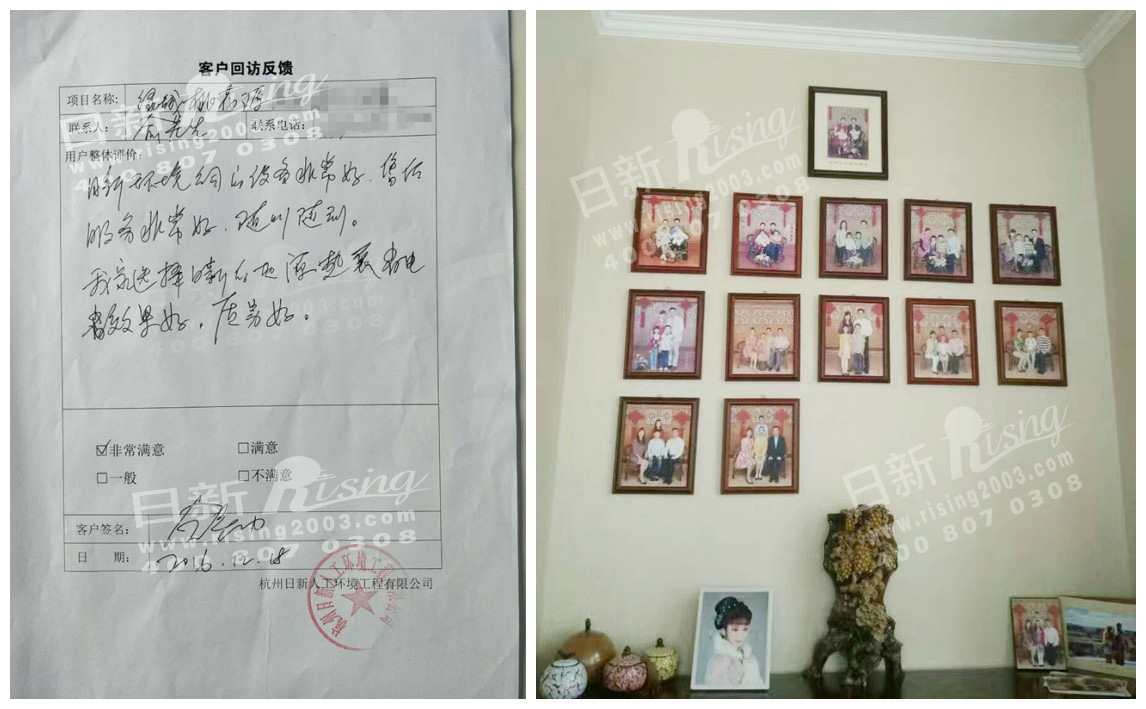 客户回访反馈
项目名称：绿城·桃花源
联系人：俞先生 联系电话：
用户整体评价：
日新环境公司设备非常好，售后
服务非常好，随叫随到。
我家选择日新 地源热泵省电
效果好，质量好。
☑非常满意 □满意
□一般 □不满意
客户签名：
日 期：2016.12.18
杭州日新人工环境工程有限公司
杭州日新人工环境工程有限公司
日新 Rising
www.rising2003.com
400 807 0308
日新 Rising
www.rising2003.com
400 807 0308
日新 Rising
www.rising2003.com
400 807 0308
日新 Rising
www.rising2003.com
400 807 0308